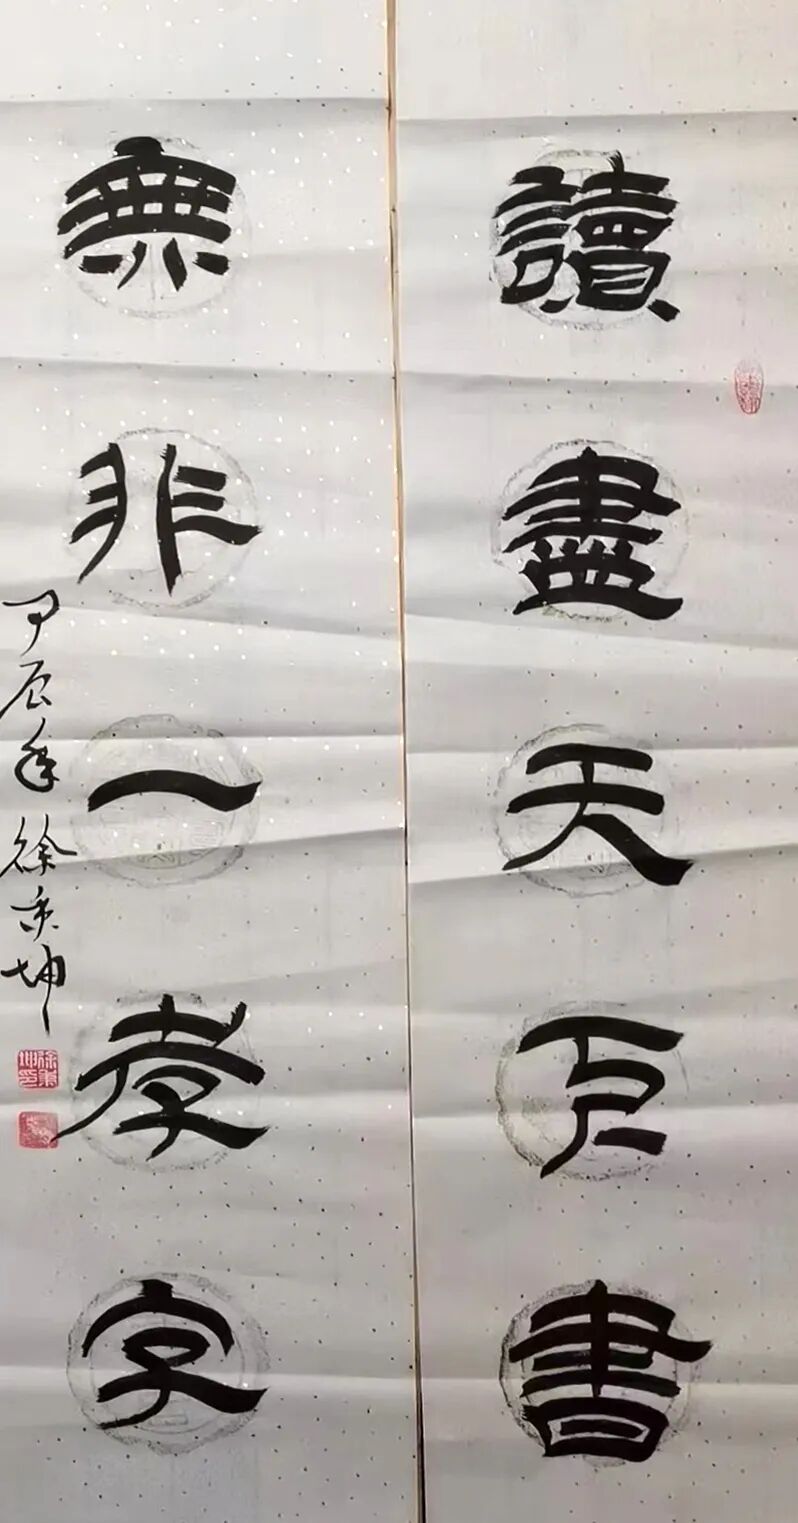 讀盡天下書
無非一孝字
甲辰年 徐秉坤